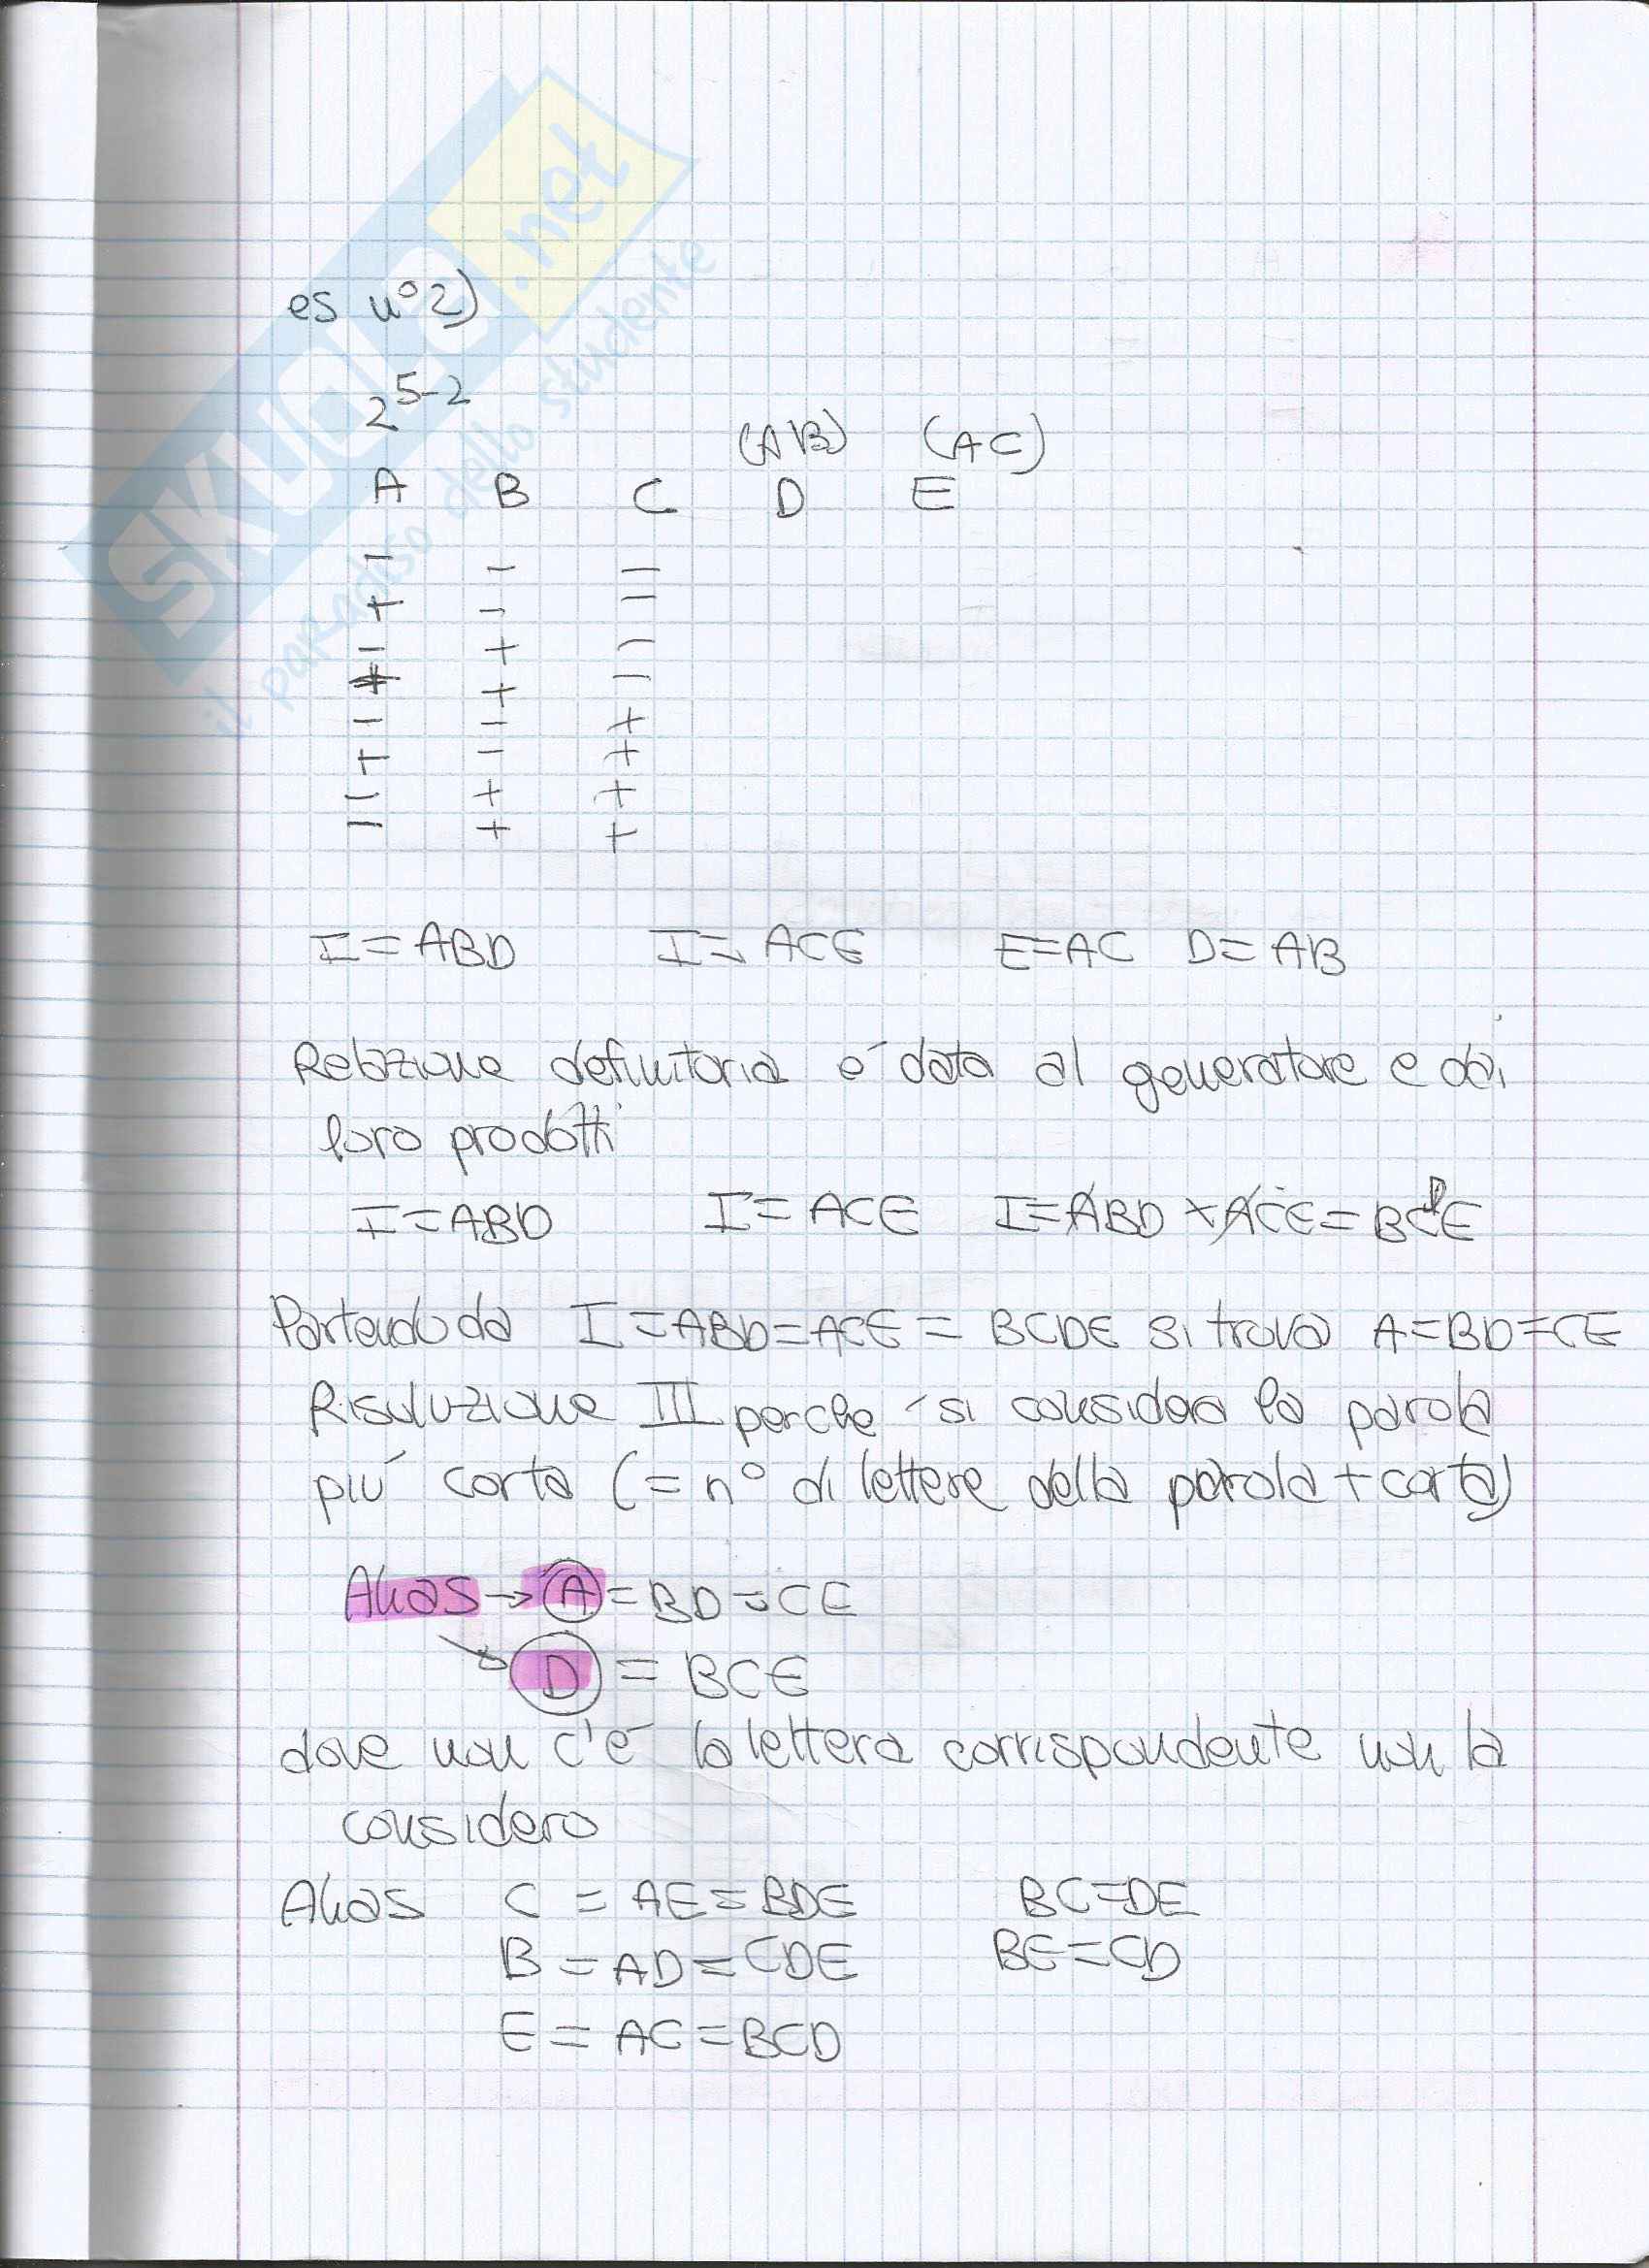 SKUOLA.net
il paradiso dello studente
es n°2)
2^5-2
(AB) (AC)
A B C D E
- - -
+ - -
- + -
+ + -
- - +
+ - +
- + +
- + +
I=ABD I= ACE E=AC D=AB
Relazione definitoria e' data al generatore e dai
loro prodotti
I=ABD I=ACE I=ABD x ACE=BCDE
Partendo da I=ABD=ACE=BCDE si trova A=BD=CE
Risoluzione III perche' si considera la parola
piu' corta (=n° di lettere della parola + corta)
Alias → A=BD=CE
D = BCE
dove non c'e' la lettera corrispondente non la
considero
Alias C = AE=BDE BC=DE
B =AD=CDE BE=CD
E = AC=BCD